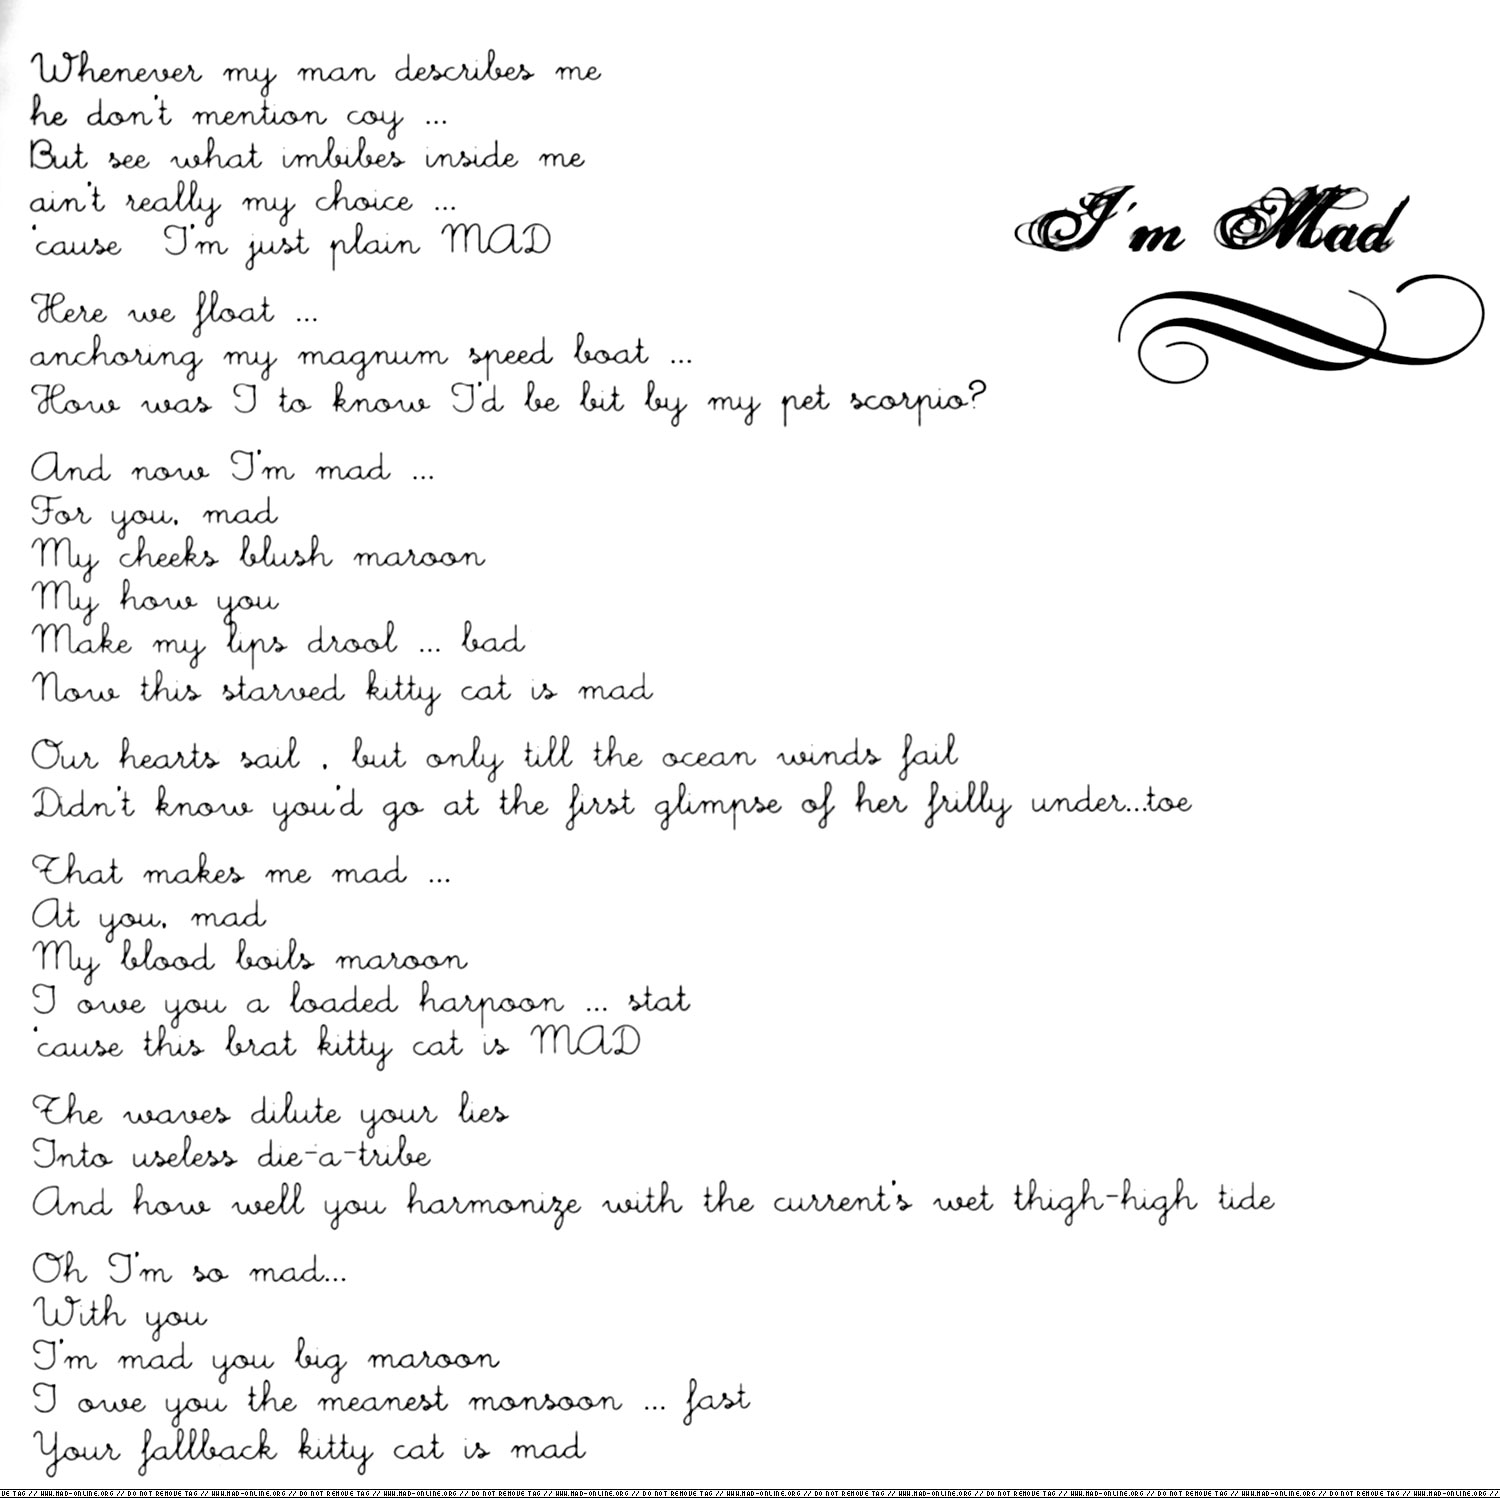 Whenever my man describes me
he don't mention coy ...
But see what imbibes inside me
ain't really my choice ...
'cause I'm just plain MAD
I'm Mad
Here we float ...
anchoring my magnum speed boat ...
How was I to know I'd be bit by my pet scorpio?
And now I'm mad ...
For you, mad
My cheeks blush maroon
My how you
Make my lips drool ... bad
Now this starved kitty cat is mad
Our hearts sail , but only till the ocean winds fail
Didn't know you'd go at the first glimpse of her frilly under...toe
That makes me mad ...
At you, mad
My blood boils maroon
I owe you a loaded harpoon ... stat
'cause this brat kitty cat is MAD
The waves dilute your lies
Into useless die-a-tribe
And how well you harmonize with the current's wet thigh-high tide
Oh I'm so mad...
With you
I'm mad you big maroon
I owe you the meanest monsoon ... fast
Your fallback kitty cat is mad
VE TAG // WWW.MAD-ONLINE.ORG // DO NOT REMOVE TAG // WWW.MAD-ONLINE.ORG // DO NOT REMOVE TAG // WWW.MAD-ONLINE.ORG // DO NOT REMOVE TAG // WWW.MAD-ONLINE.ORG // DO NOT REMOVE TAG // WWW.MAD-ONLINE.ORG // DO NOT REMOVE TAG // WWW.MAD-ONLINE.ORG // DO NOT REMOVE TAG // WWW.MAD-ONLINE.ORG // DO NOT REMOVE TAG // WWW.MAD-ONLINE.ORG // DO NOT REMOVE TAG // WWW.MAD-ONLINE.ORG //